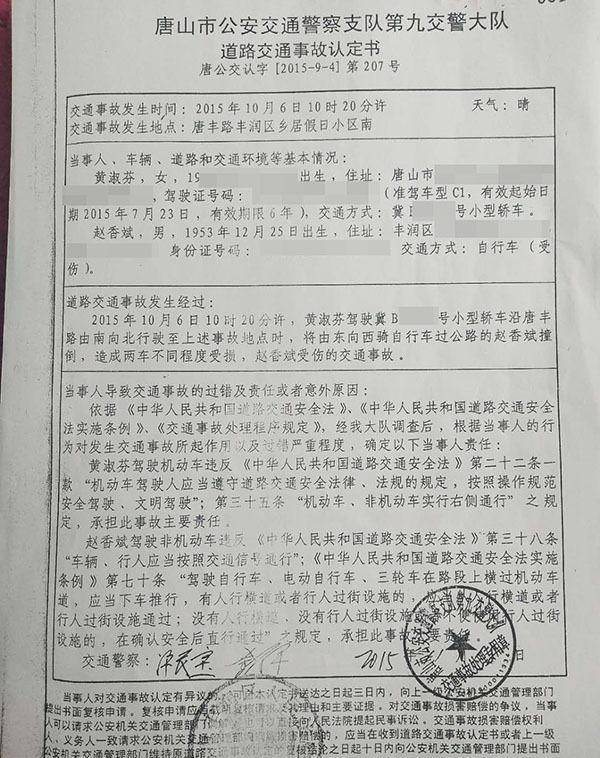 唐山市公安交通警察支队第九交警大队
道路交通事故认定书
唐公交认字 [2015-9-4] 第 207 号
交通事故发生时间: 2015 年 10 月 6 日 10 时 20 分许 天气: 晴
交通事故发生地点: 唐丰路丰润区乡居假日小区南
当事人、车辆、道路和交通环境等基本情况:
黄淑芬, 女, 19 出生, 住址: 唐山市
, 驾驶证号码: (准驾车型 C1, 有效起始日
期 2015 年 7 月 23 日, 有效期限 6 年), 交通方式: 冀 B 号小型轿车。
赵香斌, 男, 1953 年 12 月 25 日出生, 住址: 丰润区
身份证号码: 交通方式: 自行车 (受
伤)。
道路交通事故发生经过:
2015 年 10 月 6 日 10 时 20 分许, 黄淑芬驾驶冀 B 号小型轿车沿唐丰
路由南向北行驶至上述事故地点时, 将由东向西骑自行车过公路的赵香斌撞
倒, 造成两车不同程度受损, 赵香斌受伤的交通事故。
当事人导致交通事故的过错及责任或者意外原因:
依据《中华人民共和国道路交通安全法》、《中华人民共和国道路交通安全
法实施条例》、《交通事故处理程序规定》, 经我大队调查后, 根据当事人的行
为对发生交通事故所起作用以及过错严重程度, 确定以下当事人责任:
黄淑芬驾驶机动车违反《中华人民共和国道路交通安全法》第二十二条一
款 “机动车驾驶人应当遵守道路交通安全法律、法规的规定, 按照操作规范
安全驾驶、文明驾驶”; 第三十五条 “机动车、非机动车实行右侧通行” 之规
定, 承担此事故主要责任。
赵香斌驾驶非机动车违反《中华人民共和国道路交通安全法》第三十八条
“车辆、行人应当按照交通信号通行”;《中华人民共和国道路交通安全法实施
条例》第七十条 “驾驶自行车、电动自行车、三轮车在路段上横过机动车
道, 应当下车推行, 有人行横道或者行人过街设施的, 应当从人行横道或者
行人过街设施通过; 没有人行横道、没有行人过街设施或者不便使用行人过街
设施的, 在确认安全后直行通过” 之规定, 承担此事故次要责任。
交通警察: 2015 日
当事人对交通事故认定有异议的, 可自本认定书送达之日起三日内, 向上一级公安机关交通管理部门
提出书面复核申请。复核申请应当载明复核请求及其理由和主要证据。对交通事故损害赔偿的争议, 当事
人可以请求公安机关交通管理部门调解, 也可以直接向人民法院提起民事诉讼。交通事故损害赔偿权利
人、义务人一致请求公安机关交通管理部门调解损害赔偿的, 应当在收到道路交通事故认定书或者上一级
公安机关交通管理部门维持原道路交通事故认定的复核结论之日起十日内向公安机关交通管理部门提出书面